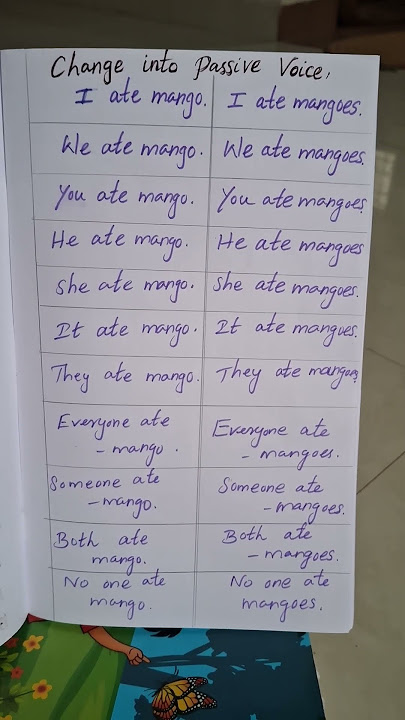 Change into Passive Voice,
I ate mango. I ate mangoes.
We ate mango. We ate mangoes.
You ate mango. You ate mangoes.
He ate mango. He ate mangoes
She ate mango. She ate mangoes.
It ate mango. It ate mangoes.
They ate mango. They ate mangoes.
Everyone ate
- mango.
Everyone ate
- mangoes.
Someone ate
- mango.
Someone ate
- mangoes.
Both ate
mango.
Both ate
- mangoes.
No one ate
mango.
No one ate
mangoes.